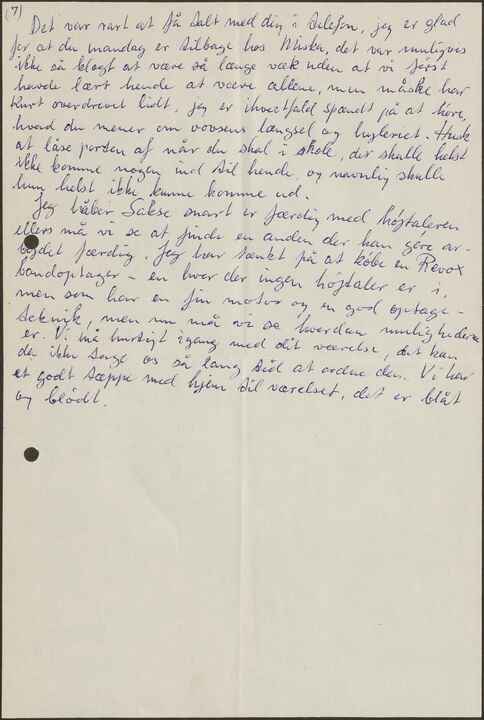 (7)
Det var rart at få talt med dig i telefon, jeg er glad
for at du mandag er tilbage hos Miska, det var muligvis
ikke så klogt at være så længe væk uden at vi først
havde lært hende at være allene, men måske har
Kurt overdrevet lidt, jeg er ihvertfald spændt på at høre,
hvad du mener om vovsens længsel og hyleriet. Husk
at låse porten af når du skal i skole, der skulle helst
ikke komme nogen ind til hende, og navnlig skulle
hun helst ikke kunne komme ud.
Jeg håber Sakse snart er færdig med højtaleren
ellers må vi se at finde en anden der kan gøre ar-
bejdet færdig. Jeg har tænkt på at købe en Revox
bandoptager - en hvor der ingen højtaler er i,
men som har en fin motor og en god optage-
teknik, men nu må vi se hvordan mulighederne
er. Vi må hurtigt igang med dit værelse, det kan
da ikke tage os så lang tid at ordne den. Vi har
et godt tæppe med hjem til værelset, det er blåt
og blødt.